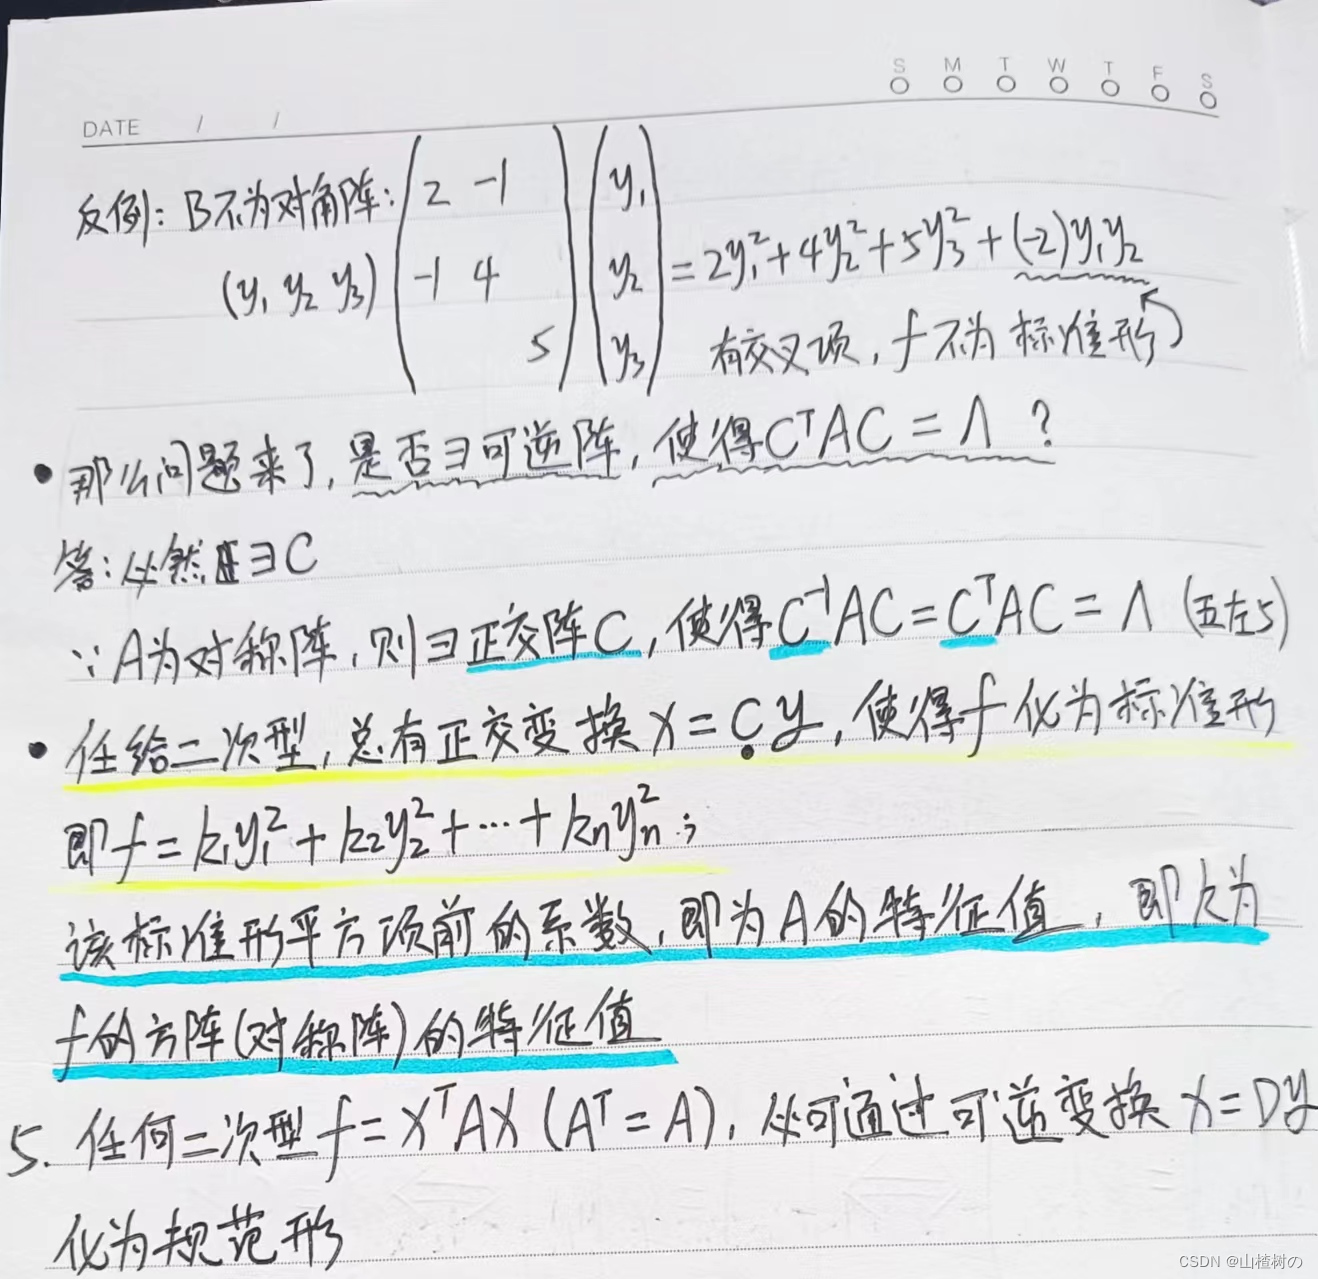 S M T W T F S
DATE / /
反例: B不为对角阵:
(y₁ y₂ y₃) (2 -1; -1 4; 5) (y₁; y₂; y₃) = 2y₁² + 4y₂² + 5y₃² + (-2)y₁y₂
有交叉项, f不为标准形
• 那么问题来了, 是否∃可逆阵, 使得CᵀAC = Λ ?
答: 必然∃C
∵ A为对称阵, 则∃正交阵C, 使得C⁻¹AC = CᵀAC = Λ (五左5)
• 任给二次型, 总有正交变换 x = Cy, 使得f化为标准形
即 f = k₁y₁² + k₂y₂² + ⋯ + kₙyₙ² ;
该标准形平方项前的系数, 即为A的特征值, 即k为
f的方阵(对称阵)的特征值
5. 任何二次型 f = xᵀAx (Aᵀ = A), 必可通过可逆变换 x = Dy
化为规范形
CSDN @山楂树の